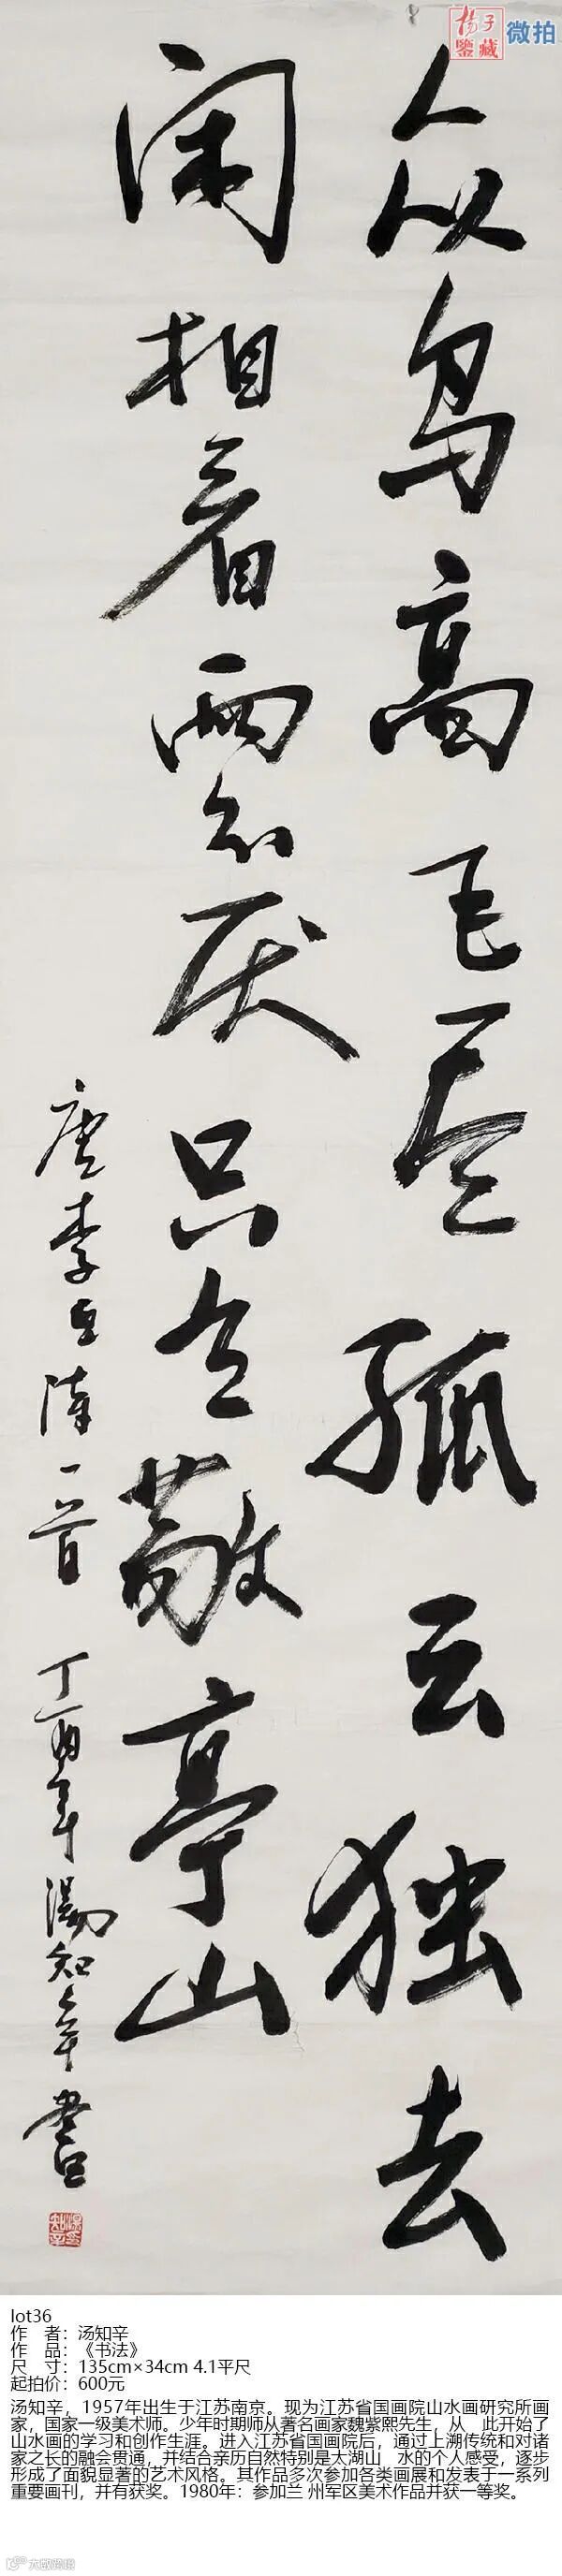 揚子鑒藏 微拍
众鸟高飞尽孤云独去
闲相看两不厌只有敬亭山
唐李白诗一首 丁酉年湯知辛書
lot36
作 者：汤知辛
作 品：《书法》
尺 寸：135cm×34cm 4.1平尺
起拍价：600元
汤知辛，1957年出生于江苏南京。现为江苏省国画院山水画研究所画
家，国家一级美术师。少年时期师从著名画家魏紫熙先生，从 此开始了
山水画的学习和创作生涯。进入江苏省国画院后，通过上溯传统和对诸
家之长的融会贯通，并结合亲历自然特别是太湖山 水的个人感受，逐步
形成了面貌显著的艺术风格。其作品多次参加各类画展和发表于一系列
重要画刊，并有获奖。1980年：参加兰 州军区美术作品并获一等奖。